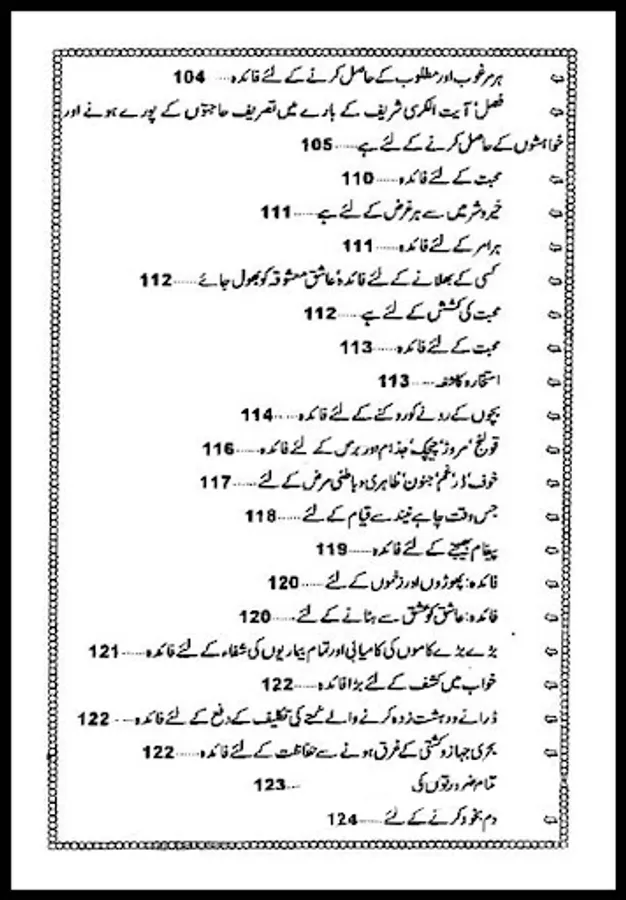 ہر مرغوب اور مطلوب کے حاصل کرنے کے لئے فائدہ.... 104
فصل' آیت الکرسی شریف کے بارے میں تصریف حاجتوں کے پورے ہونے اور
خواہشوں کے حاصل کرنے کے لئے ہے.....105
محبت کے لئے فائدہ.....110
خیر و شر میں سے ہر غرض کے لئے ہے.....111
ہر امر کے لئے فائدہ.....111
کسی کے بھلانے کے لئے فائدہ' عاشق معشوقہ کو بھول جائے.....112
محبت کی کشش کے لئے ہے.....112
محبت کے لئے فائدہ.....113
استخارہ کاشفہ....113
بچوں کے رونے کو روکنے کے لئے فائدہ.....114
قولنج' مروڑ' چیچک' جذام اور برص کے لئے فائدہ.....116
خوف' ڈر' غم' جنون' ظاہری و باطنی مرض کے لئے.....117
جس وقت چاہے نیند سے قیام کے لئے.....118
پیغام بھیجنے کے لئے فائدہ.....119
فائدہ: پھوڑوں اور زخموں کے لئے.....120
فائدہ: عاشق کو عشق سے ہٹانے کے لئے.....120
بڑے بڑے کاموں کی کامیابی اور تمام بیماریوں کی شفاء کے لئے فائدہ.....121
خواب میں کشف کے لئے بڑا فائدہ.....122
ڈرانے و دہشت زدہ کرنے والے کتے کی تکلیف کے دفع کے لئے فائدہ.... 122
بحری جہاز و کشتی کے غرق ہونے سے حفاظت کے لئے فائدہ.....122
تمام ضرورتوں کی ....123
دم بخود کرنے کے لئے.....124